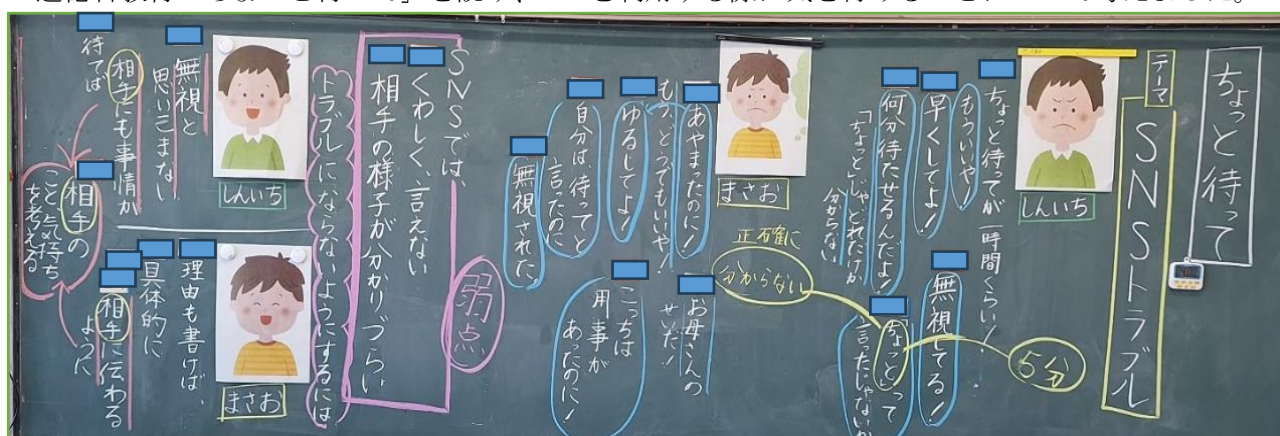 ちょっと待って
テーマ
SNSトラブル
しんいち
ちょっと待ってが一時間くらい!
もういいや!
早くしてよ!
何分待たせるんだよ!
「ちょっと」じゃどれだけか
分からない
無視してる!
「ちょっと」って
言ったじゃないか
5分
正確に
分からない
まさお
あやまったのに!
もう、どうでもいいや!
ゆるしてよ!
自分は、待ってと
言ったのに
無視された
お母さんの
せいだ!
こっちは
用事が
あったのに!
SNSでは、
くわしく、言えない
相手の様子が分かりづらい
弱点
トラブルにならないようにするには
しんいち
無視と
思いこまない
待てば
相手にも事情が
まさお
理由も書けば、
具体的に
相手に伝わる
ように
相手の
こと、気持ち
を考える